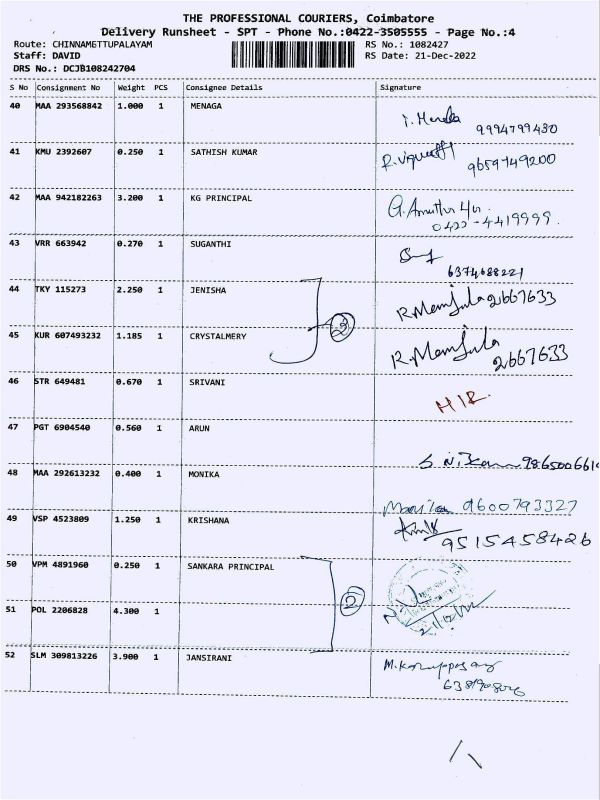 THE PROFESSIONAL COURIERS, Coimbatore
Delivery Runsheet - SPT - Phone No.:0422-3505555 - Page No.:4
Route: CHINNAMETTUPALAYAM RS No.: 1082427
Staff: DAVID RS Date: 21-Dec-2022
DRS No.: DCJB108242704
S No Consignment No Weight PCS Consignee Details Signature
40 MAA 293568842 1.000 1 MENAGA
9994799430
41 KMU 2392607 0.250 1 SATHISH KUMAR
9659749200
42 MAA 942182263 3.200 1 KG PRINCIPAL
0422-4419999.
43 VRR 663942 0.270 1 SUGANTHI
6374688221
44 TKY 115273 2.250 1 JENISHA R. Manjula 2667633
45 KUR 607493232 1.185 1 CRYSTALMERY R. Manjula
2667633
46 STR 649481 0.670 1 SRIVANI
47 PGT 6904540 0.560 1 ARUN
48 MAA 292613232 0.400 1 MONIKA
9600793327
49 VSP 4523809 1.250 1 KRISHANA
9515458426
50 VPM 4891960 0.250 1 SANKARA PRINCIPAL
51 POL 2206828 4.300 1
52 SLM 309813226 3.900 1 JANSIRANI